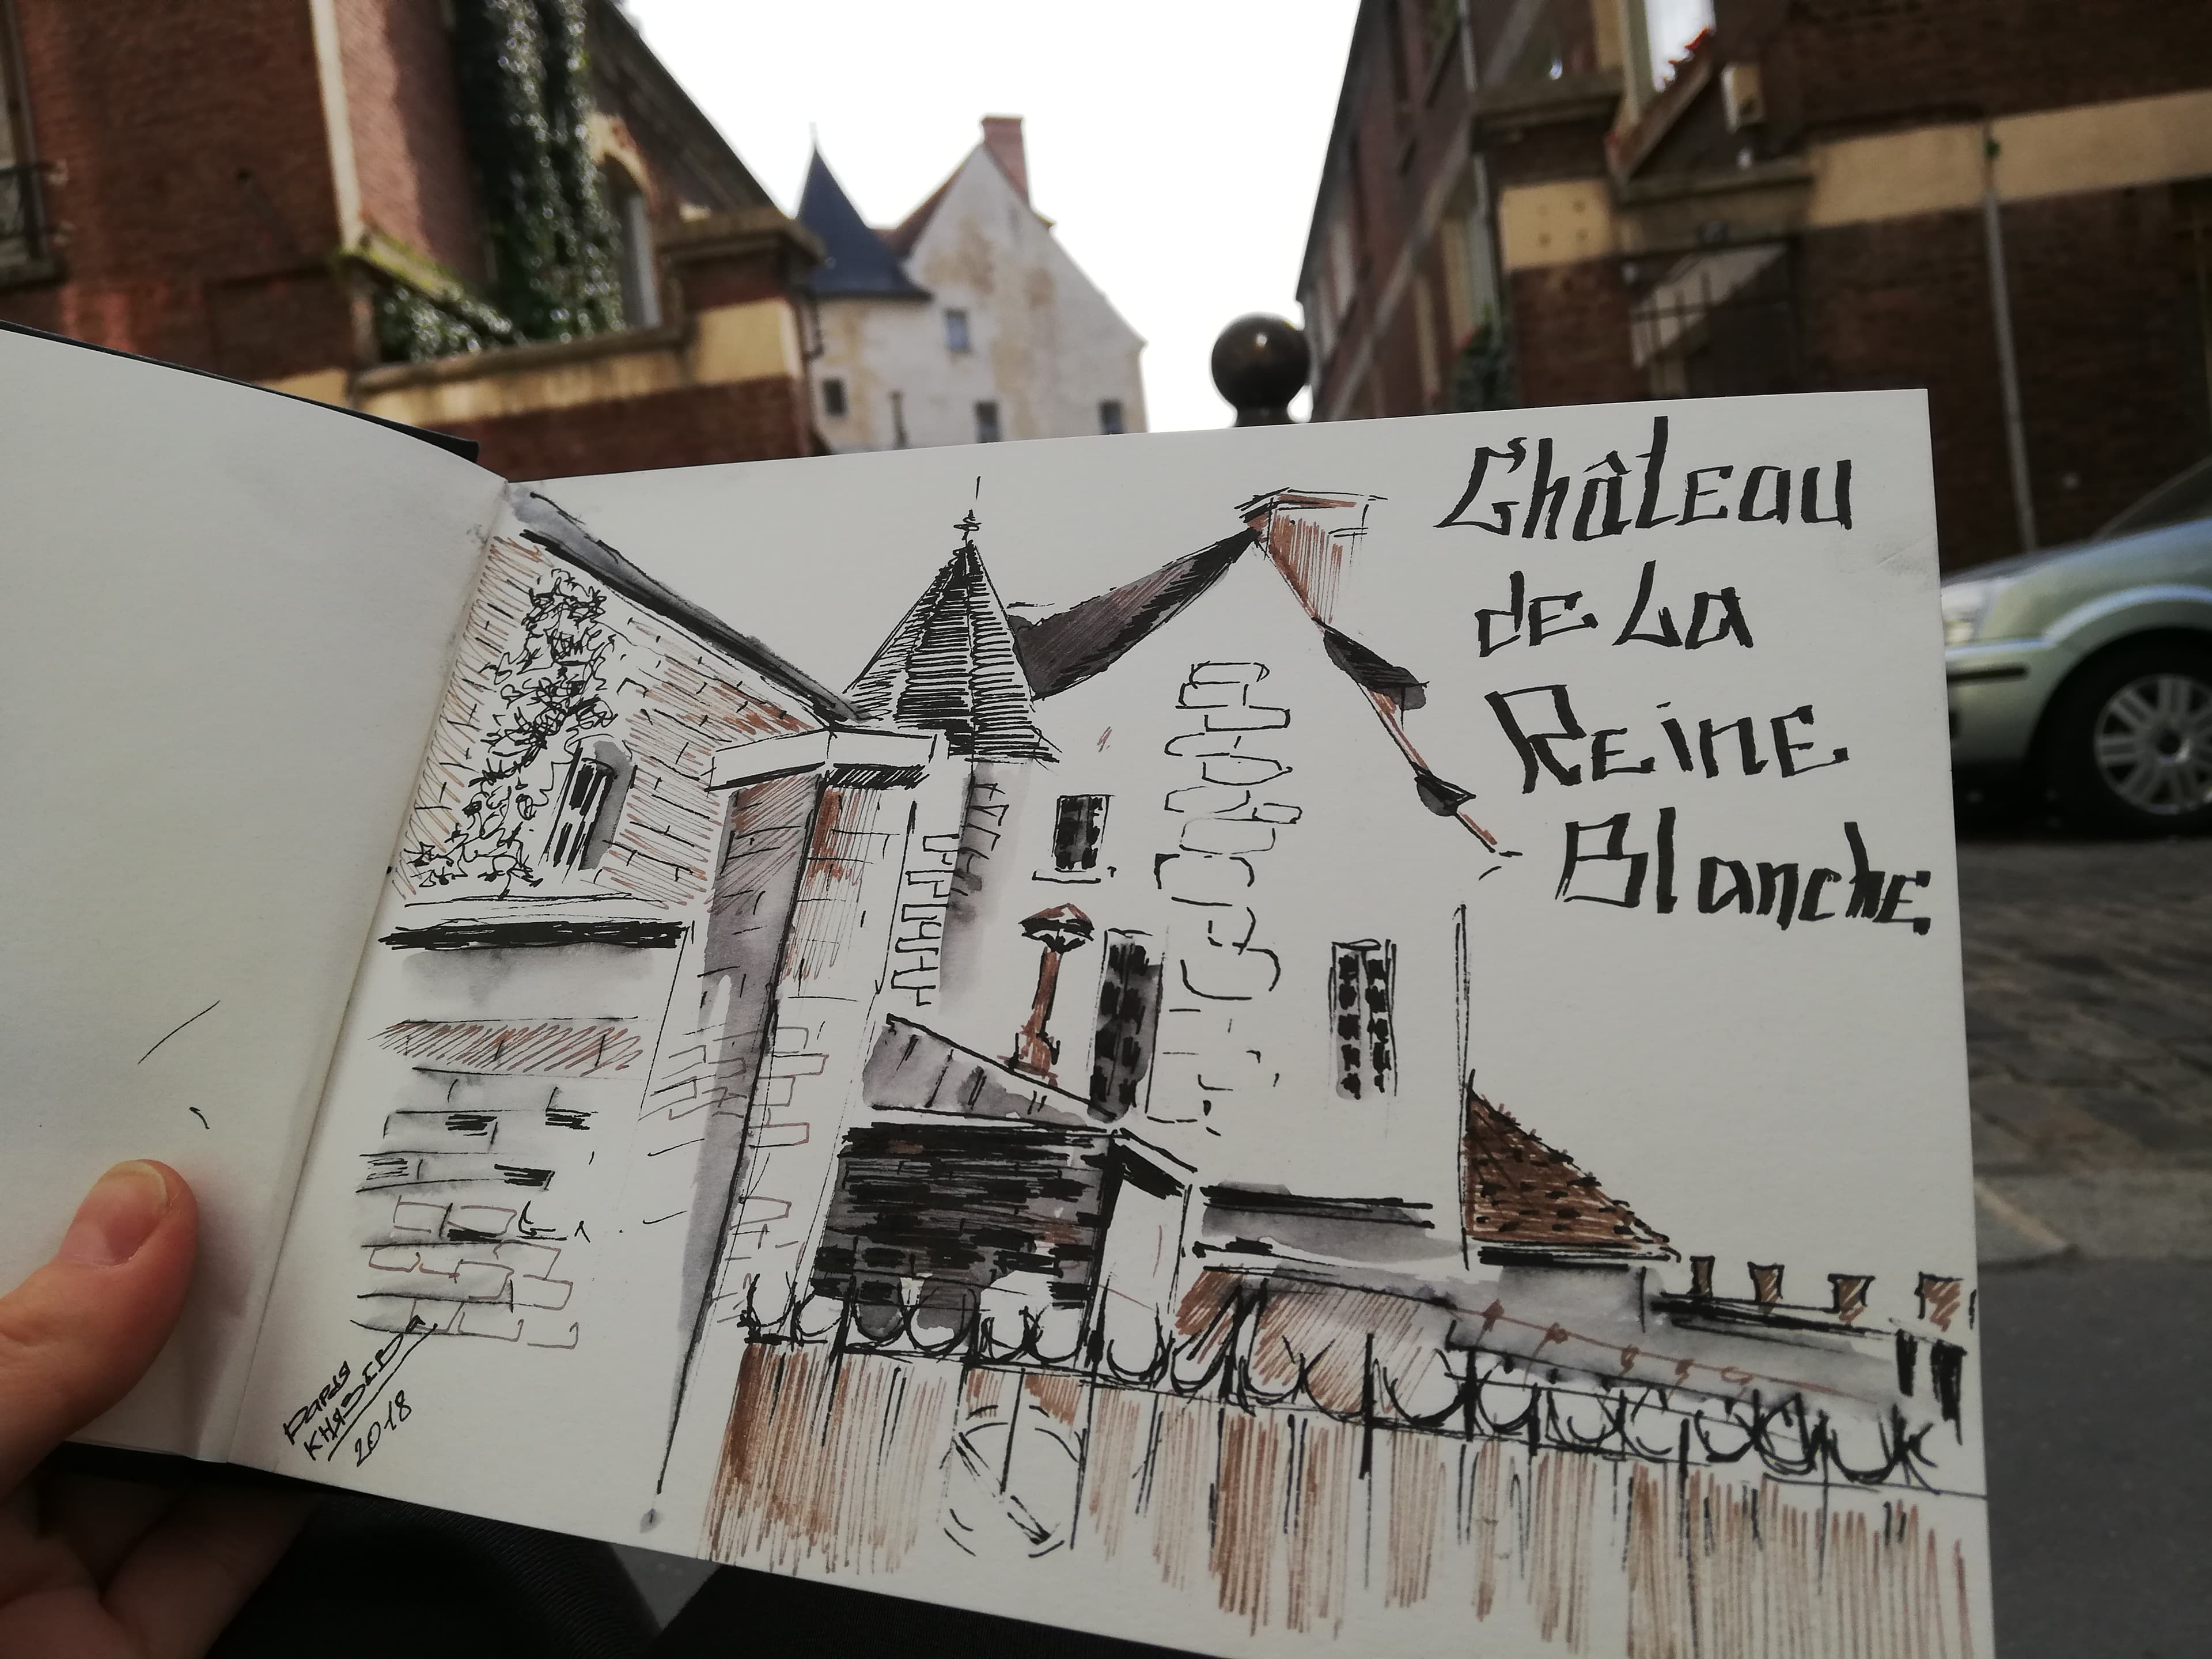 Château
de La
Reine
Blanche
Paris
2018